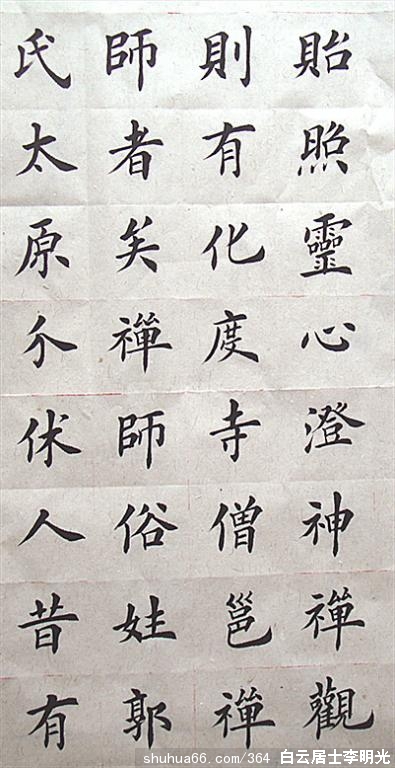 貽照靈心澄神禪觀
則有化度寺僧邕禪
師者矣禪師俗姓郭
氏太原介休人昔有
shuhua66.com/364 白云居士李明光